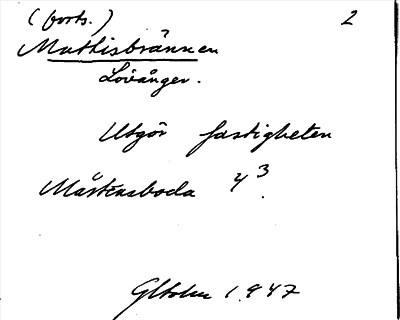 (forts.) 2
Mattisbrännen
Lövånger.
Utgör fastigheten
Mårtensboda 4³.
1947